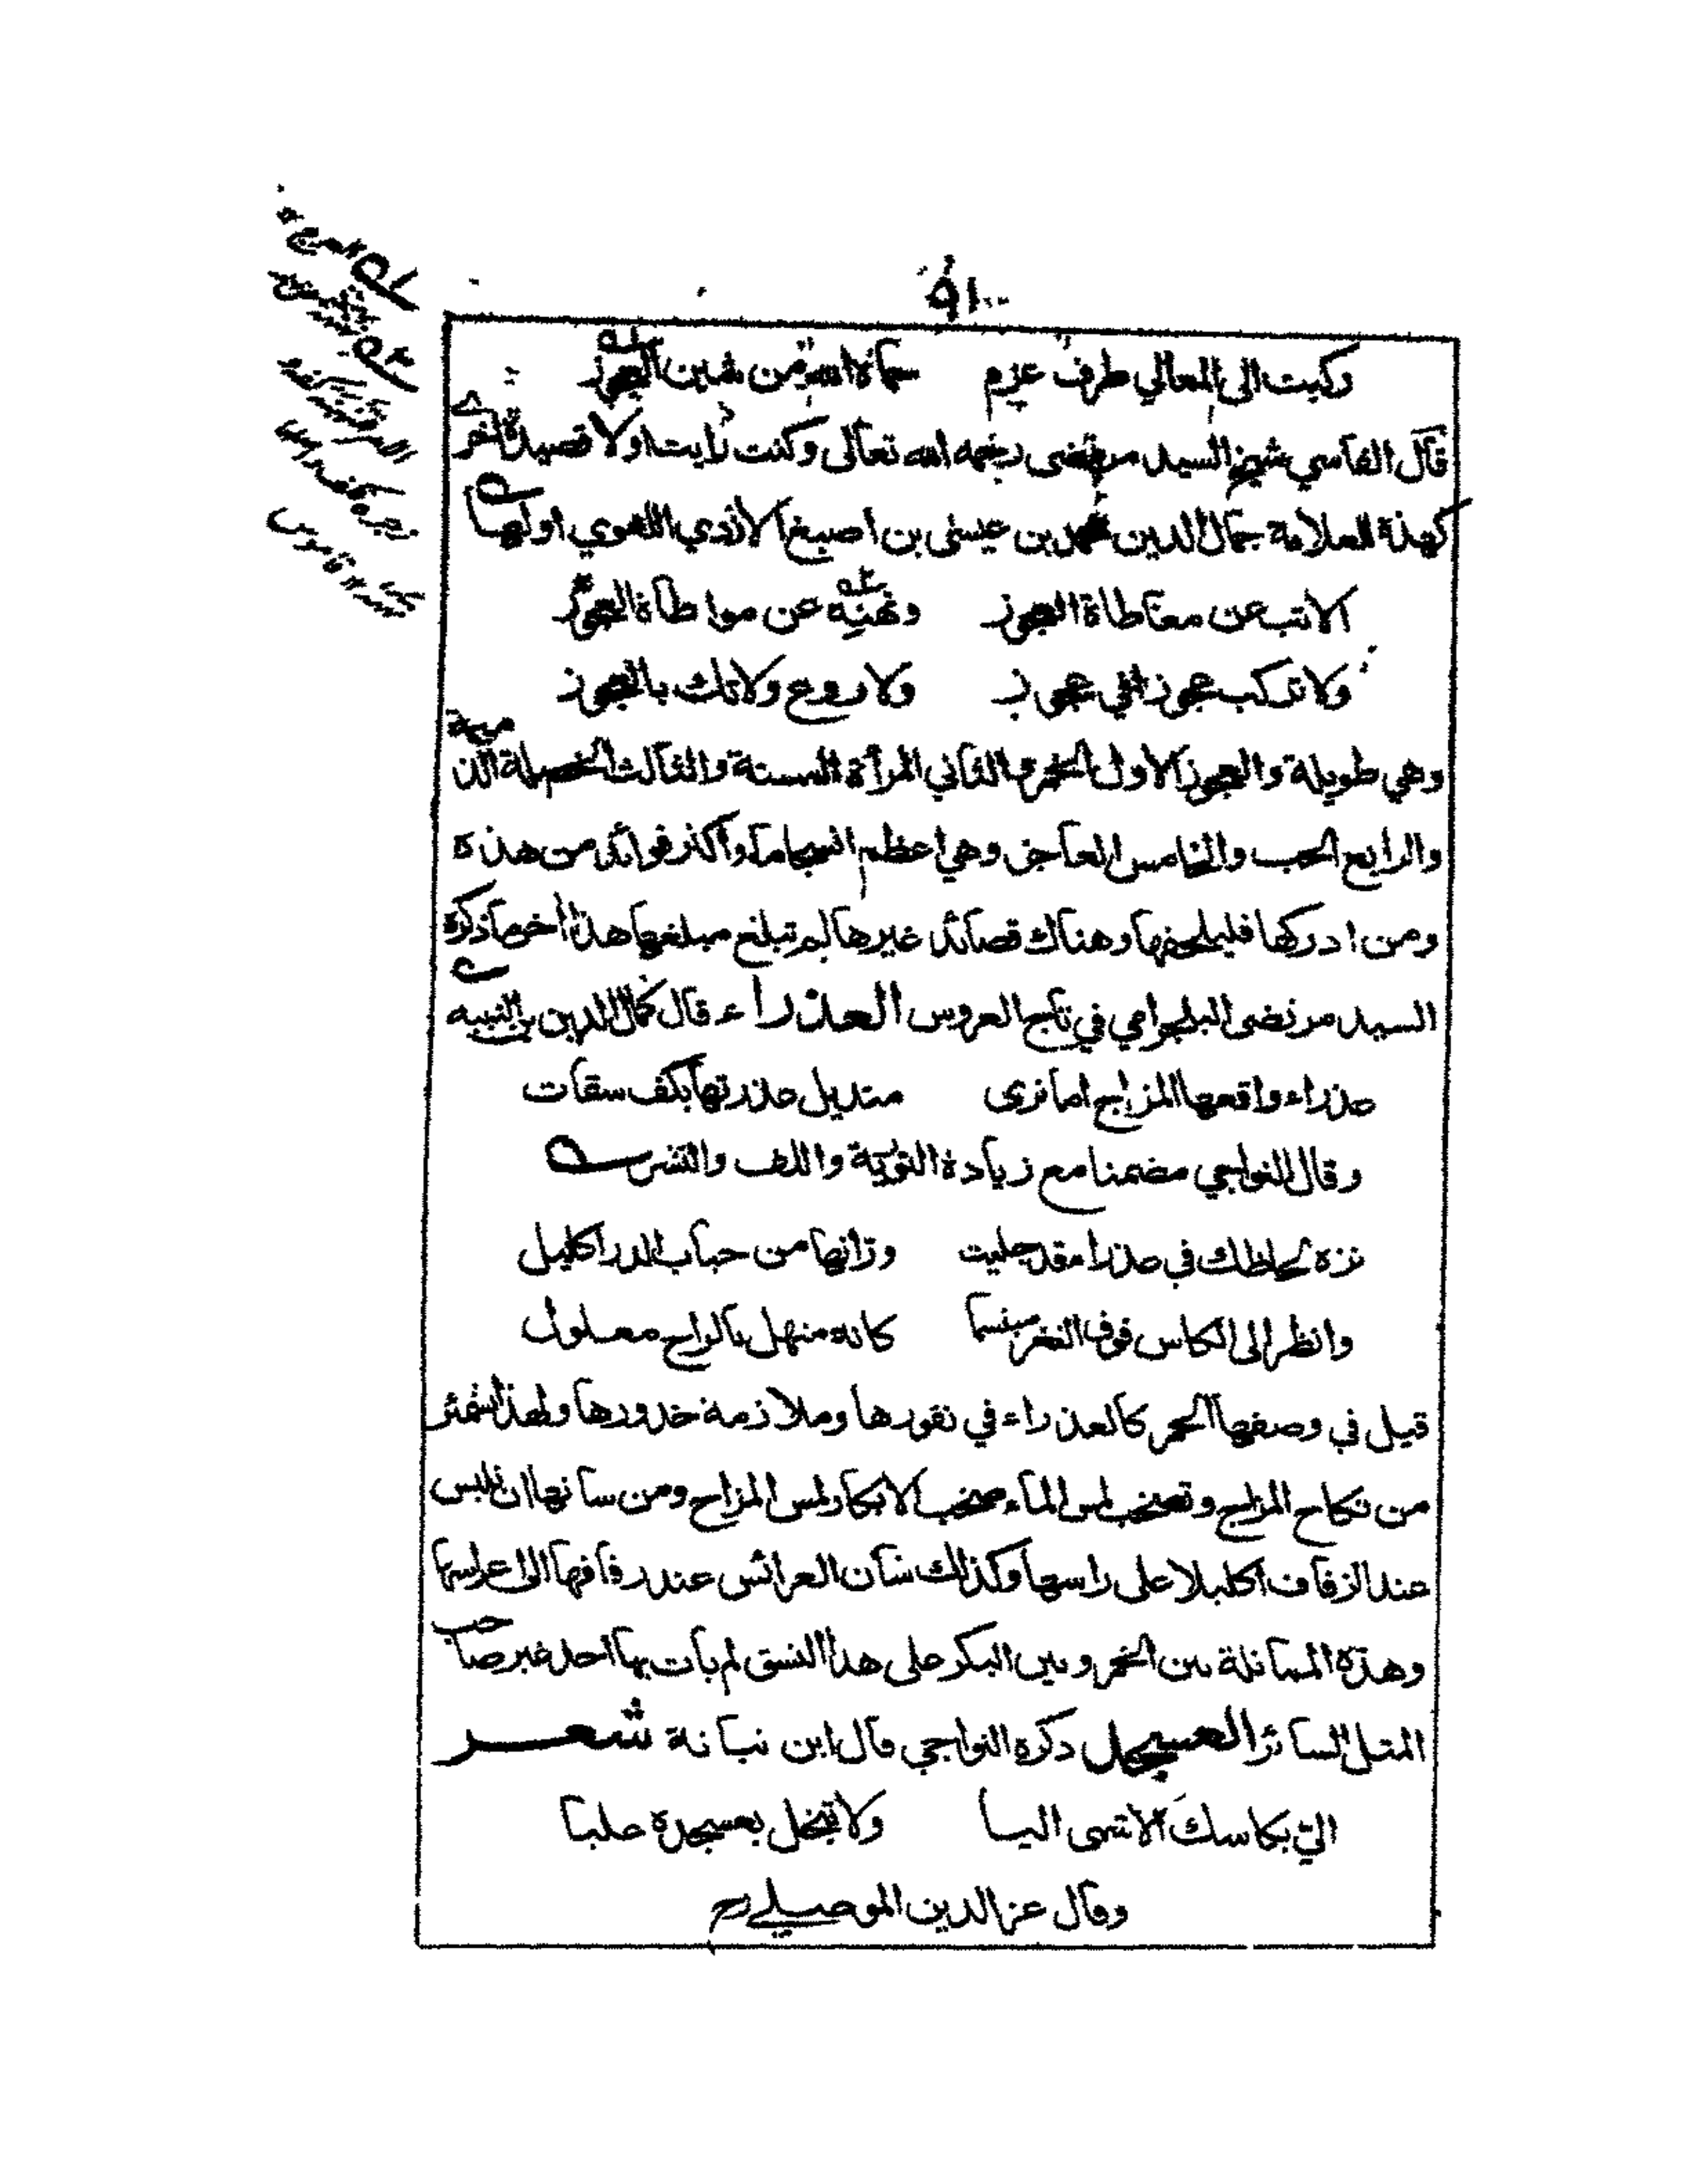 ٩١
وكبت الى المعالي طرف عزم سماه الله من شين العجوز
قال الفاسي شيخ السيد مرتضى رحمه الله تعالى وكنت رايت اولا قصيدة اخرى
كهذة للعلامة جمال الدين محمد بن عيسى بن اصبغ الازدي اللغوي اولها
الا تب عن معاطاة العجوز ونهنه عن مواطاة العجوز
ولا تركب عجوز في عجوز ولا روع ولا تك بالعجوز
وهي طويلة والعجوز الاول الخمر والثاني المرأة المسنة والثالث الخصلة الذميمة
والرابع الحب والخامس العاجز وهي اعظم انسجاما واكثر فوائد من هذه
ومن ادركها فليلحقها وهناك قصائد غيرها لم تبلغ مبلغها هذا أخر ما ذكره
السيد مرتضى البلجرامي في تاج العروس العذراء قال كمال الدين بن النبيه
عذراء واقعها المزاج اما ترى منديل عذرتها بكف سقات
وقال النواجي مضمنا مع زيادة التورية واللف والنشر
نزه لحاظك في عذراء قد جليت وزانها من حباب الدر اكليل
وانظر الى الكاس فوق الثغر مبتسما كانه منهل بالراح معلول
قيل في وصفها الخمر كالعذراء في نفورها وملازمة خدورها ولهذا تشمئز
من نكاح المزاج وتصخب لمس الماء صخب الابكار لمس المزاح ومن شانها ان تلبس
عند الزفاف اكليلا على راسها وكذلك شان العرائس عند زفافها الى عراسها
وهذه المماثلة بين الخمر وبين البكر على هذا النسق لم يأت بها احد غير صاحب
المثل السائر العسجد ذكره النواجي قال ابن نباتة شعر
الي بكاسك الاشهى اليا ولا تبخل بعسجده عليا
وقال عز الدين الموصلي رح